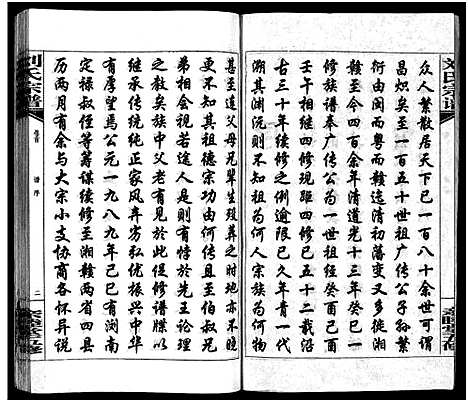 众人繁散居天下已一百八十余世可谓
昌炽矣至一百五十世祖广传公子孙繁
衍由闽而粤而赣迨清初藩变又多徙湘
赣至今四百余年清道光十三年癸巳续
修族谱奉广传公为一世祖经癸酉己巳
壬午相继续修四修距今五十二载沿
古三十年续修之例逾限已久年青一代
溯其渊沅则不知祖为何人宗族为何物
甚至连父母兄辈生殁葬之时地亦不晓
更不知其祖德宗功由何传且至伯叔兄
弟相会视若途人是则有悖于先王论理
之教矣族中父老有见于此促修谱牒以
继承传统纯正家风弃劣私优振兴中华
有厚望焉公元一九八九年己巳有浏南
定禄叔侄等筹谋续修至湘赣两省四县
历两月有余与大宗小支协商各怀讥
刘氏宗谱
卷首 谱序
二
刘氏宗谱